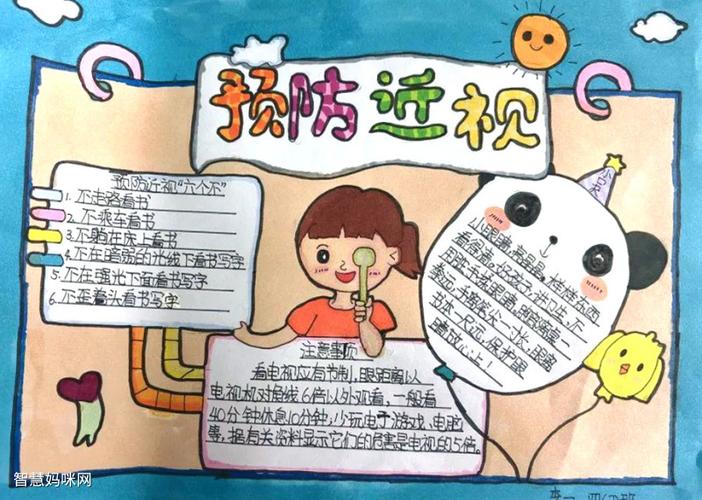 预防近视
预防近视“六个不”
1. 不走路看书
2. 不乘车看书
3. 不躺在床上看书
4. 不在暗弱的光线下看书写字
5. 不在强光下面看书写字
6. 不歪着头看书写字
注意事项
看电视应有节制，眼距离以
电视机对角线6倍以外观看，一般看
40分钟休息10分钟，少玩电子游戏、电脑
等，据有关资料显示它们的危害是电视的5倍。
小眼睛，亮晶晶，样样东西
看得清，好孩子，讲卫生，不
用脏手揉眼睛，
书本一尺远，保护眼
睛放心上！
智慧妈咪网